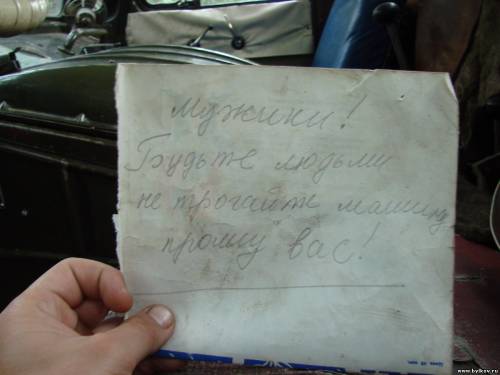 мужики!
Будьте людьми
не трогайте машину
прошу вас!
www.bylkov.ru